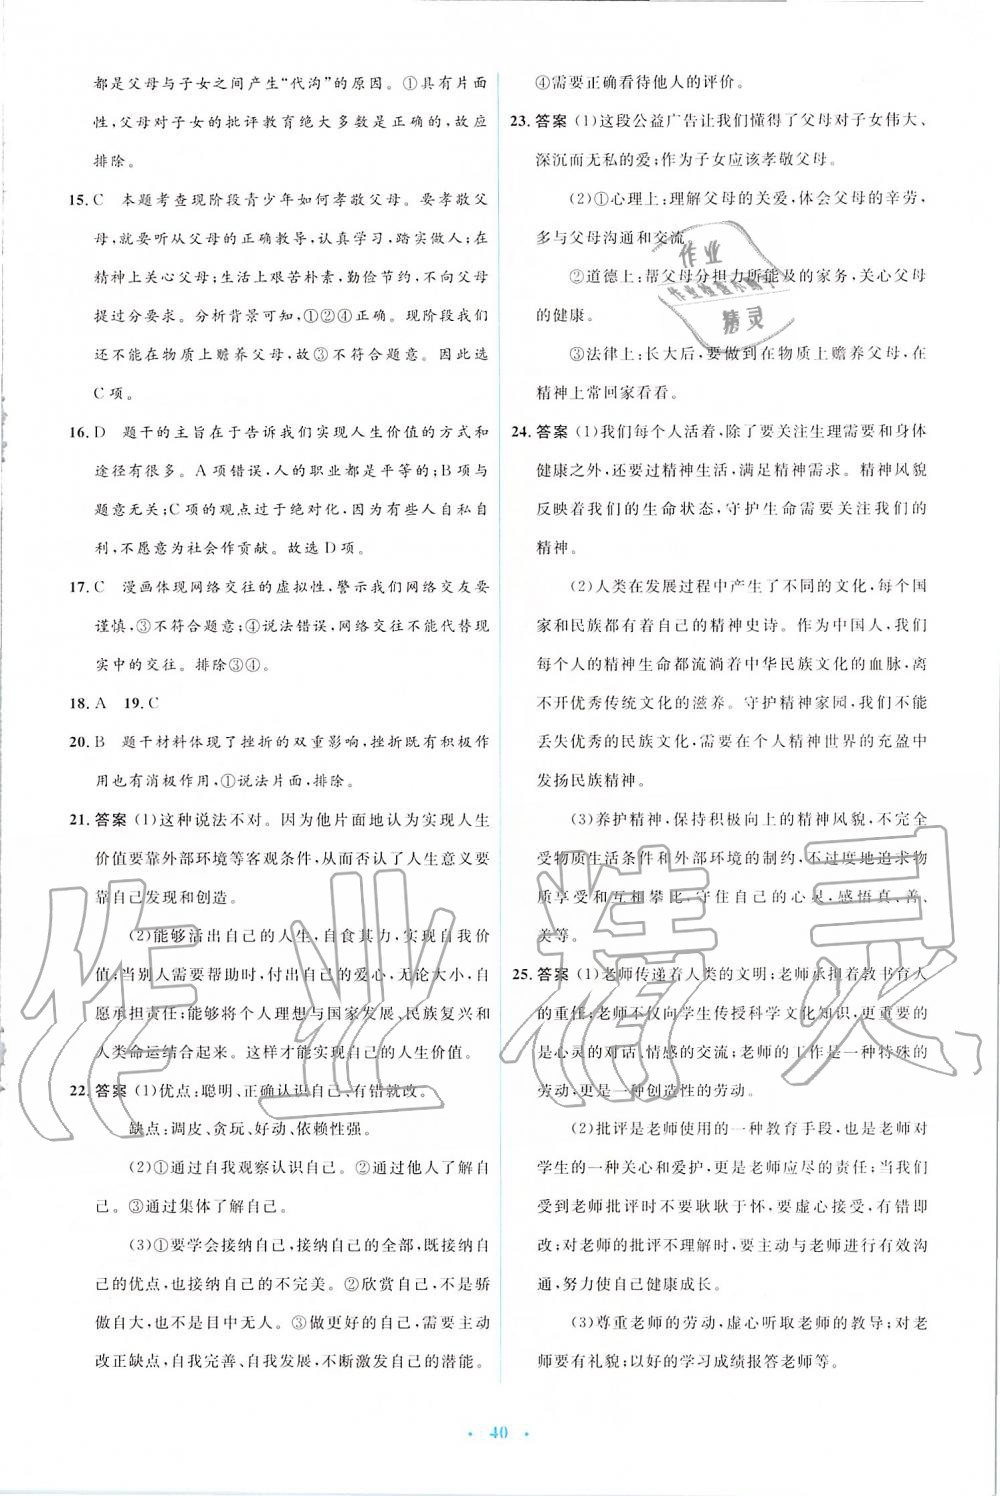 都是父母与子女之间产生“代沟”的原因。①具有片面
性,父母对子女的批评教育绝大多数是正确的,故应
排除。
15. C 本题考查现阶段青少年如何孝敬父母。要孝敬父
母,就要听从父母的正确教导,认真学习,踏实做人;在
精神上关心父母;生活上艰苦朴素,勤俭节约,不向父母
提过分要求。分析背景可知,①②④正确。现阶段我们
还不能在物质上赡养父母,故③不符合题意。因此选
C项。
16. D 题干的主旨在于告诉我们实现人生价值的方式和
途径有很多。A项错误,人的职业都是平等的;B项与
题意无关;C项的观点过于绝对化,因为有些人自私自
利,不愿意为社会作贡献。故选D项。
17. C 漫画体现网络交往的虚拟性,警示我们网络交友要
谨慎,③不符合题意;④说法错误,网络交往不能代替现
实中的交往。排除③④。
18. A 19. C
20. B 题干材料体现了挫折的双重影响,挫折既有积极作
用也有消极作用,①说法片面,排除。
21. 答案 (1)这种说法不对。因为他片面地认为实现人生
价值要靠外部环境等客观条件,从而否认了人生意义要
靠自己发现和创造。
(2)能够活出自己的人生,自食其力,实现自我价
值;当别人需要帮助时,付出自己的爱心,无论大小,自
愿承担责任;能够将个人理想与国家发展、民族复兴和
人类命运结合起来。这样才能实现自己的人生价值。
22. 答案 (1)优点:聪明、正确认识自己、有错就改。
缺点:调皮、贪玩、好动、依赖性强。
(2)①通过自我观察认识自己。②通过他人了解自
己。③通过集体了解自己。
(3)①要学会接纳自己,接纳自己的全部,既接纳自
己的优点,也接纳自己的不完美。②欣赏自己,不是骄
傲自大,也不是目中无人。③做更好的自己,需要主动
改正缺点,自我完善、自我发展,不断激发自己的潜能。
④需要正确看待他人的评价。
23. 答案 (1)这段公益广告让我们懂得了父母对子女伟大、
深沉而无私的爱;作为子女应该孝敬父母。
(2)①心理上:理解父母的关爱,体会父母的辛劳,
多与父母沟通和交流
②道德上:帮父母分担力所能及的家务,关心父母
的健康。
③法律上:长大后,要做到在物质上赡养父母,在
精神上常回家看看。
24. 答案 (1)我们每个人活着,除了要关注生理需要和身体
健康之外,还要过精神生活,满足精神需求。精神风貌
反映着我们的生命状态,守护生命需要关注我们的
精神。
(2)人类在发展过程中产生了不同的文化,每个国
家和民族都有着自己的精神史诗。作为中国人,我们
每个人的精神生命都流淌着中华民族文化的血脉,离
不开优秀传统文化的滋养。守护精神家园,我们不能
丢失优秀的民族文化,需要在个人精神世界的充盈中
发扬民族精神。
(3)养护精神,保持积极向上的精神风貌,不完全
受物质生活条件和外部环境的制约,不过度地追求物
质享受和互相攀比,守住自己的心灵,感悟真、善、
美等。
25. 答案 (1)老师传递着人类的文明;老师承担着教书育人
的重任;老师不仅向学生传授科学文化知识,更重要的
是心灵的对话、情感的交流;老师的工作是一种特殊的
劳动,更是一种创造性的劳动。
(2)批评是老师使用的一种教育手段,也是老师对
学生的一种关心和爱护,更是老师应尽的责任;当我们
受到老师批评时不要耿耿于怀,要虚心接受,有错即
改;对老师的批评不理解时,要主动与老师进行有效沟
通,努力使自己健康成长。
(3)尊重老师的劳动,虚心听取老师的教导;对老
师要有礼貌;以好的学习成绩报答老师等。
· 40 ·
作业
作业检查小助手
精灵
作业精灵